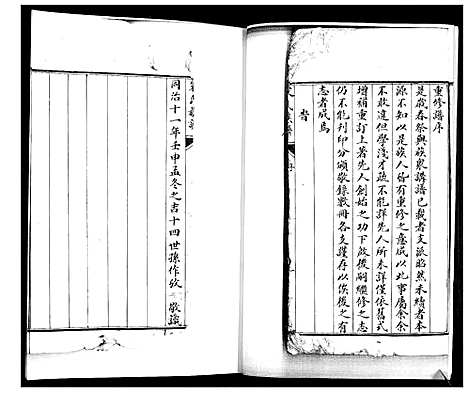 重修譜序
是歲春祭與族衆講譜已載者支派昭然未續者本
源不知以是族人皆有重修之意咸以此事屬余余
不敢違但學淺才疏不能詳先人所未詳僅依舊式
增補重訂上著先人創始之功下啟後嗣繼修之志
仍不能列印分頒敬錄數冊各支謹存以俟後之有
志者成焉
皆
同治十一年壬申孟冬之吉十四世孫作 敬識